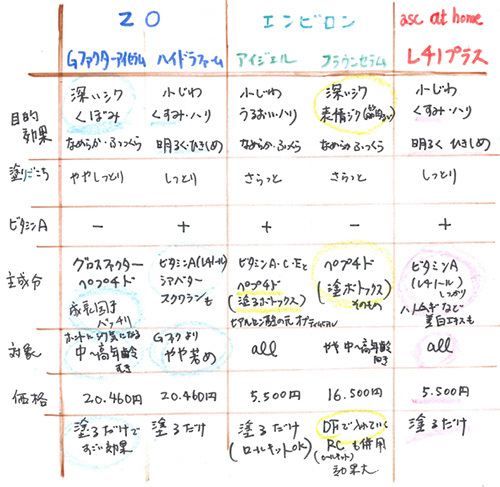 ZO エンビロン asc at home
Gファクターアイセラム ハイドラファーム アイジェル フラウンセラム L41プラス
目的 深いシワ 小じわ 小じわ 深いシワ 小じわ
効果 くぼみ くすみ・ハリ うるおい・ハリ 表情ジワ くすみ・ハリ
なめらか・ふっくら 明るく・ひきしめ なめらか・ふっくら なめらか・ふっくら 明るく・ひきしめ
塗りごこち ややしっとり しっとり さらっと さらっと しっとり
ビタミンA － ＋ ＋ － ＋
主成分 グロスファクター ビタミンA(レチノール) ビタミンA・C・Eと ペプチド ビタミンA
ペプチド シアバター ペプチド (塗ボトックス) (レチノール)
成長因子 スクワランも (塗るボトックス) そのもの しっかり
バッチリ ハトムギなど
美白エキスも
対象 ホントに効気になる Gファクより all やや中〜高年齢 all
中〜高年齢 やや若め 向き
むき
価格 20.460円 20.460円 5.500円 16.500円 5.500円
塗るだけで 塗るだけ 塗るだけ DFで入れていく 塗るだけ
すごい効果 (ロールキットOK) RCも併用
(ロールキット)
効果大